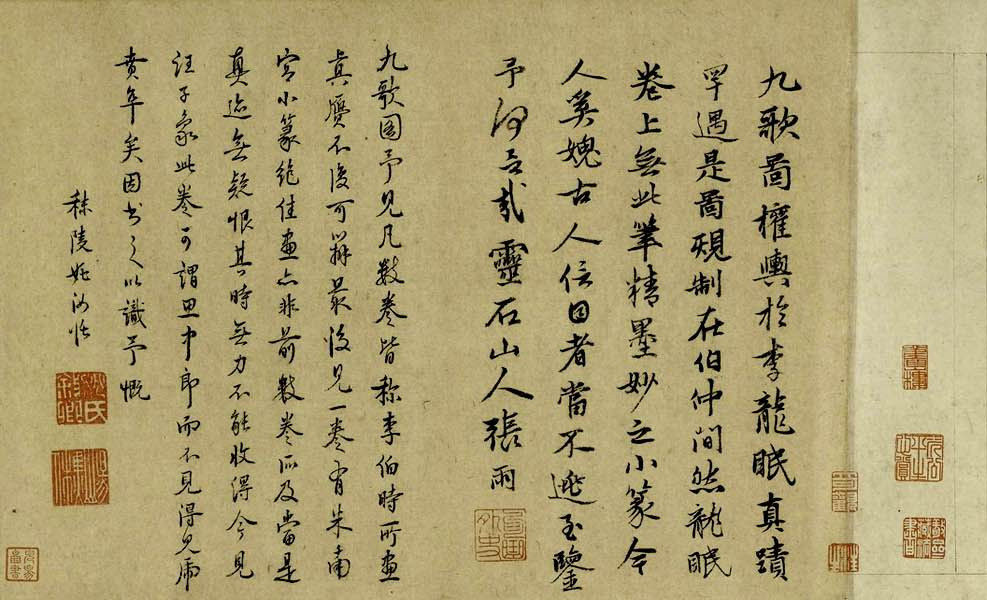 九歌圖權輿於李龍眠真蹟
罕遇是圖規制在伯仲間然龍眠
卷上無此筆精墨妙之小篆令
人奚媿古人信目者當不逃至鑒
予何言哉靈石山人張雨
句曲外史
九歌圖予見凡數卷皆稱李伯時所畫
真贋不復可辨最後見一卷有米南
宮小篆絶佳畫亦非前數卷所及當是
真迹無疑恨其時無力不能收得今見
汪子象此卷可謂思中郎而不見得見虎
賁年矣因書之以識予慨
秣陵姚汝循
姚氏敘卿